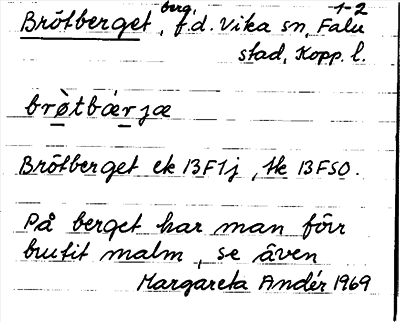 1-2
Brötberget, berg, f.d. Vika sn, Falu
stad, Kopp. l.
brò̱tbæ̀ṟjæ
Brötberget ek 13F1j, tk 13FSO.
På berget har man förr
brutit malm, se även
Margareta Andér 1969